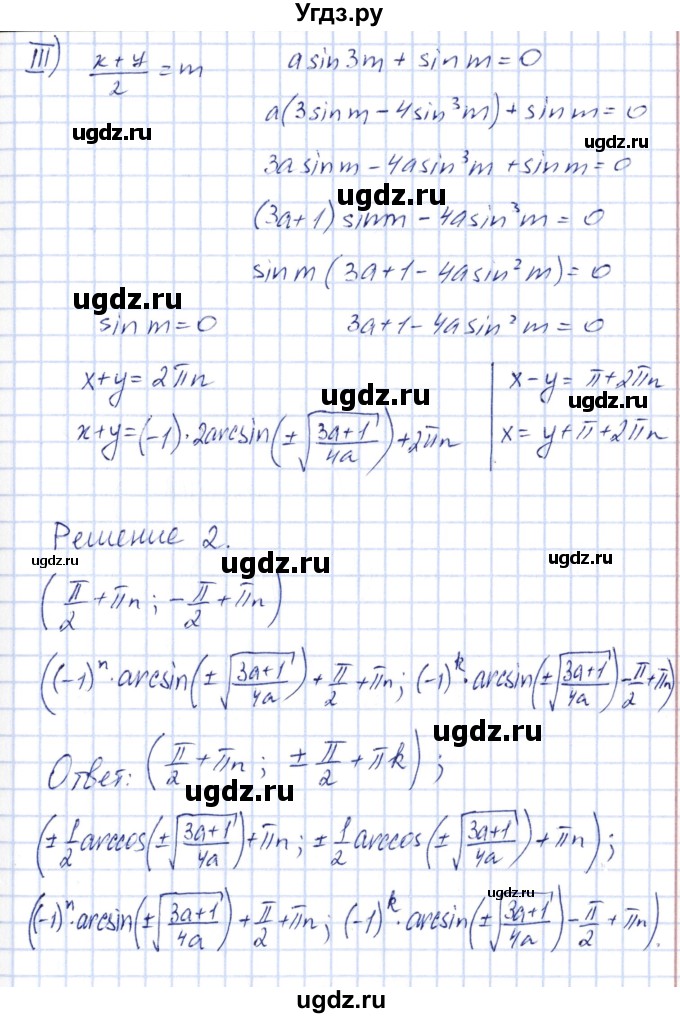 Угдз.ру
III) (x+y)/2 = m    a sin3m + sinm = 0
ugdz.ru
a(3sinm − 4sin³m) + sinm = 0
ugdz.ru
3a sinm − 4a sin³m + sinm = 0
ugdz.ru
(3a+1) sinm − 4a sin³m = 0
sinm (3a+1 − 4a sin²m) = 0
ugdz.ru
sinm = 0    3a+1 − 4a sin²m = 0
x+y = 2πn    | x−y = π+2πn
ugdz.ru
x+y = (−1)·2arcsin(±√((3a+1)/(4a))) + 2πn    | x = y+π+2πn
ugdz.ru
Решение 2.
ugdz.ru ugdz.ru ugdz.ru
(π/2 + πn; −π/2 + πn)
ugdz.ru
((−1)ⁿ·arcsin(±√((3a+1)/(4a))) + π/2 + πn; (−1)ᵏ·arcsin(±√((3a+1)/(4a))) − π/2 + πn)
ugdz.ru ugdz.ru
Ответ: (π/2 + πn; ±π/2 + πk);
ugdz.ru
(±1/2 arccos(±√((3a+1)/(4a))) + πn; ±1/2 arccos(±√((3a+1)/(4a))) + πn);
ugdz.ru ugdz.ru
((−1)ⁿ·arcsin(±√((3a+1)/(4a))) + π/2 + πn; (−1)ᵏ·arcsin(±√((3a+1)/(4a))) − π/2 + πn).
ugdz.ru
ugdz.ru